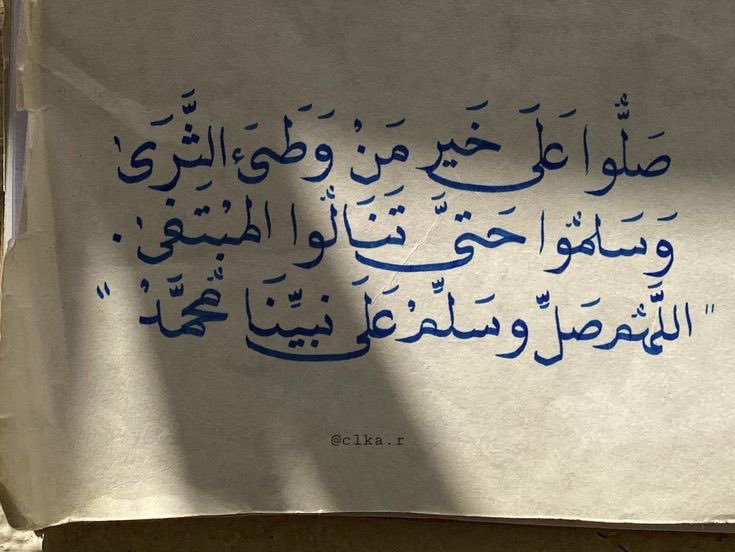 صَلُّوا عَلَى خَيرِ مَنْ وَطِىَء الثَّرَىٰ
وَسَلِّمُوا حَتىَّ تَنَالُوا المُبْتَغىٰ .
"اللَّهُمَّ صَلِّ وسَلِّمْ عَلَى نبيِّنَا مُحمَّدْ"
@clka.r